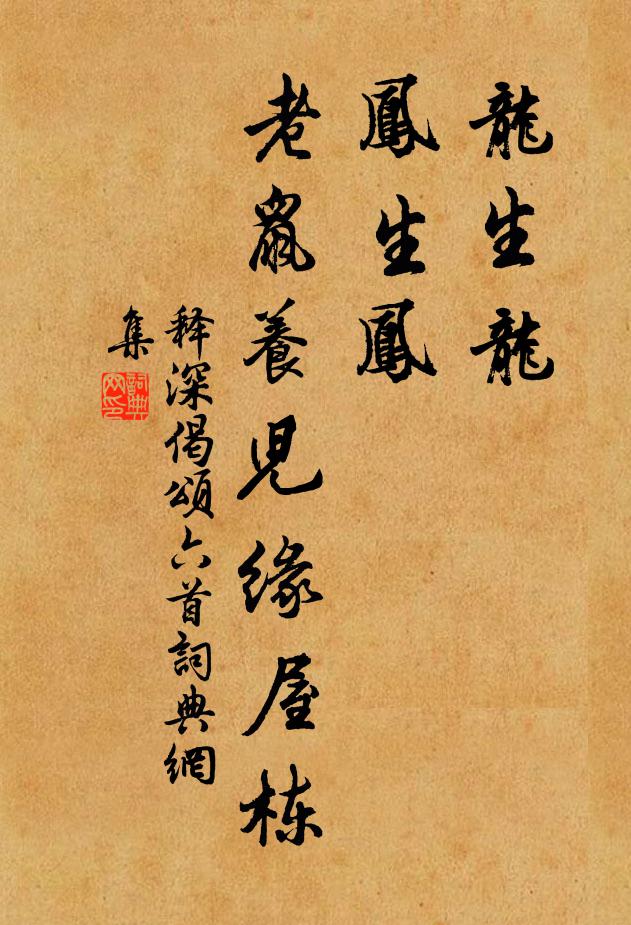 龍生龍
鳳生鳳
老鼠養児緣屋栋
释深偈頌六首詞典網
集
詞典
网印